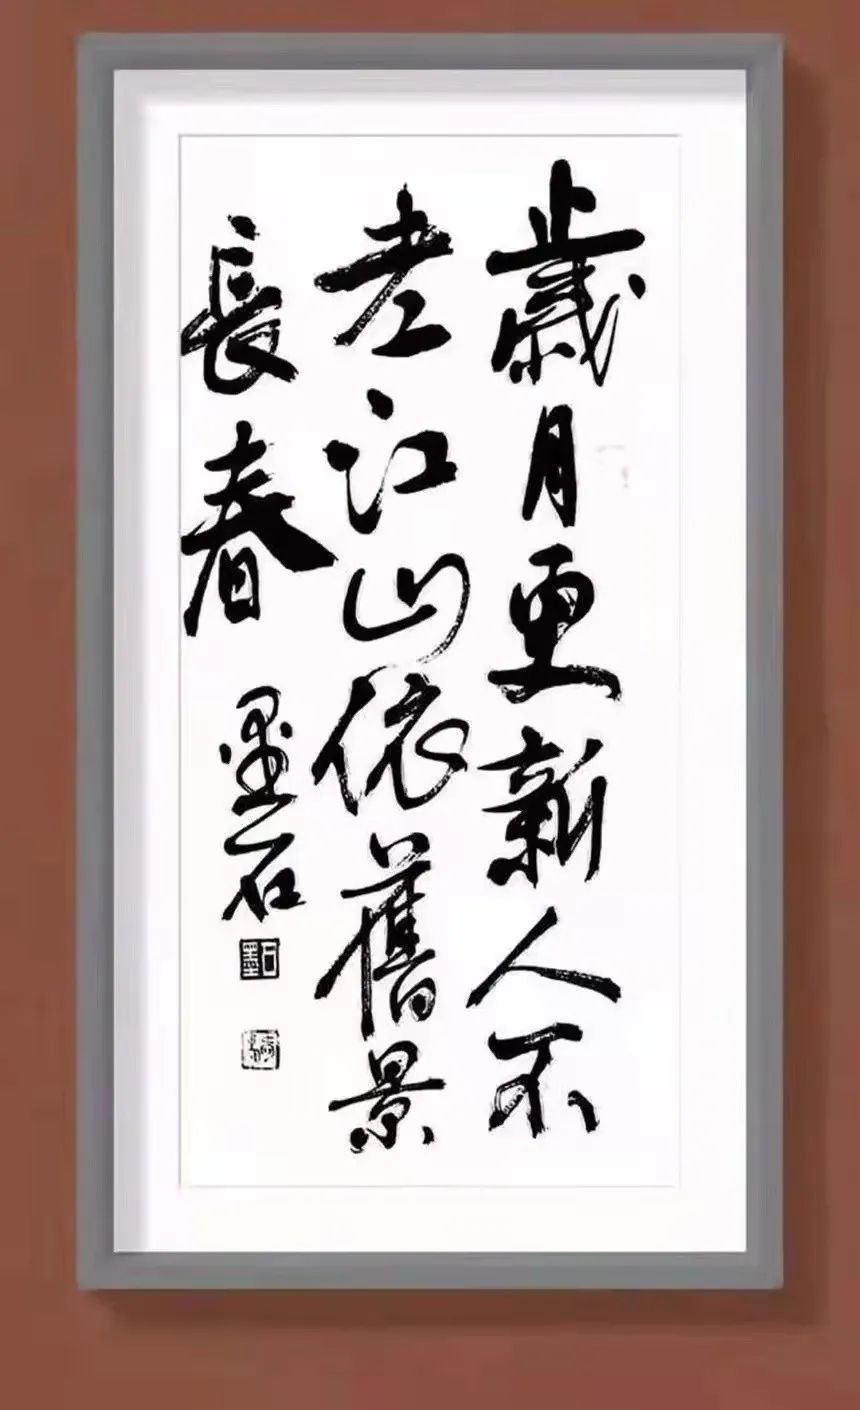 歲月更新人不
老江山依舊景
長春
墨石
石墨